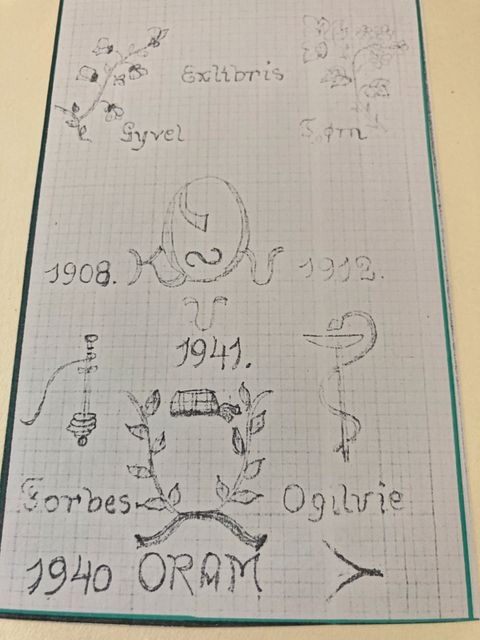 Exlibris
Gyvel
1908. 1912.
1941.
Forbes Ogilvie
1940 ORAM